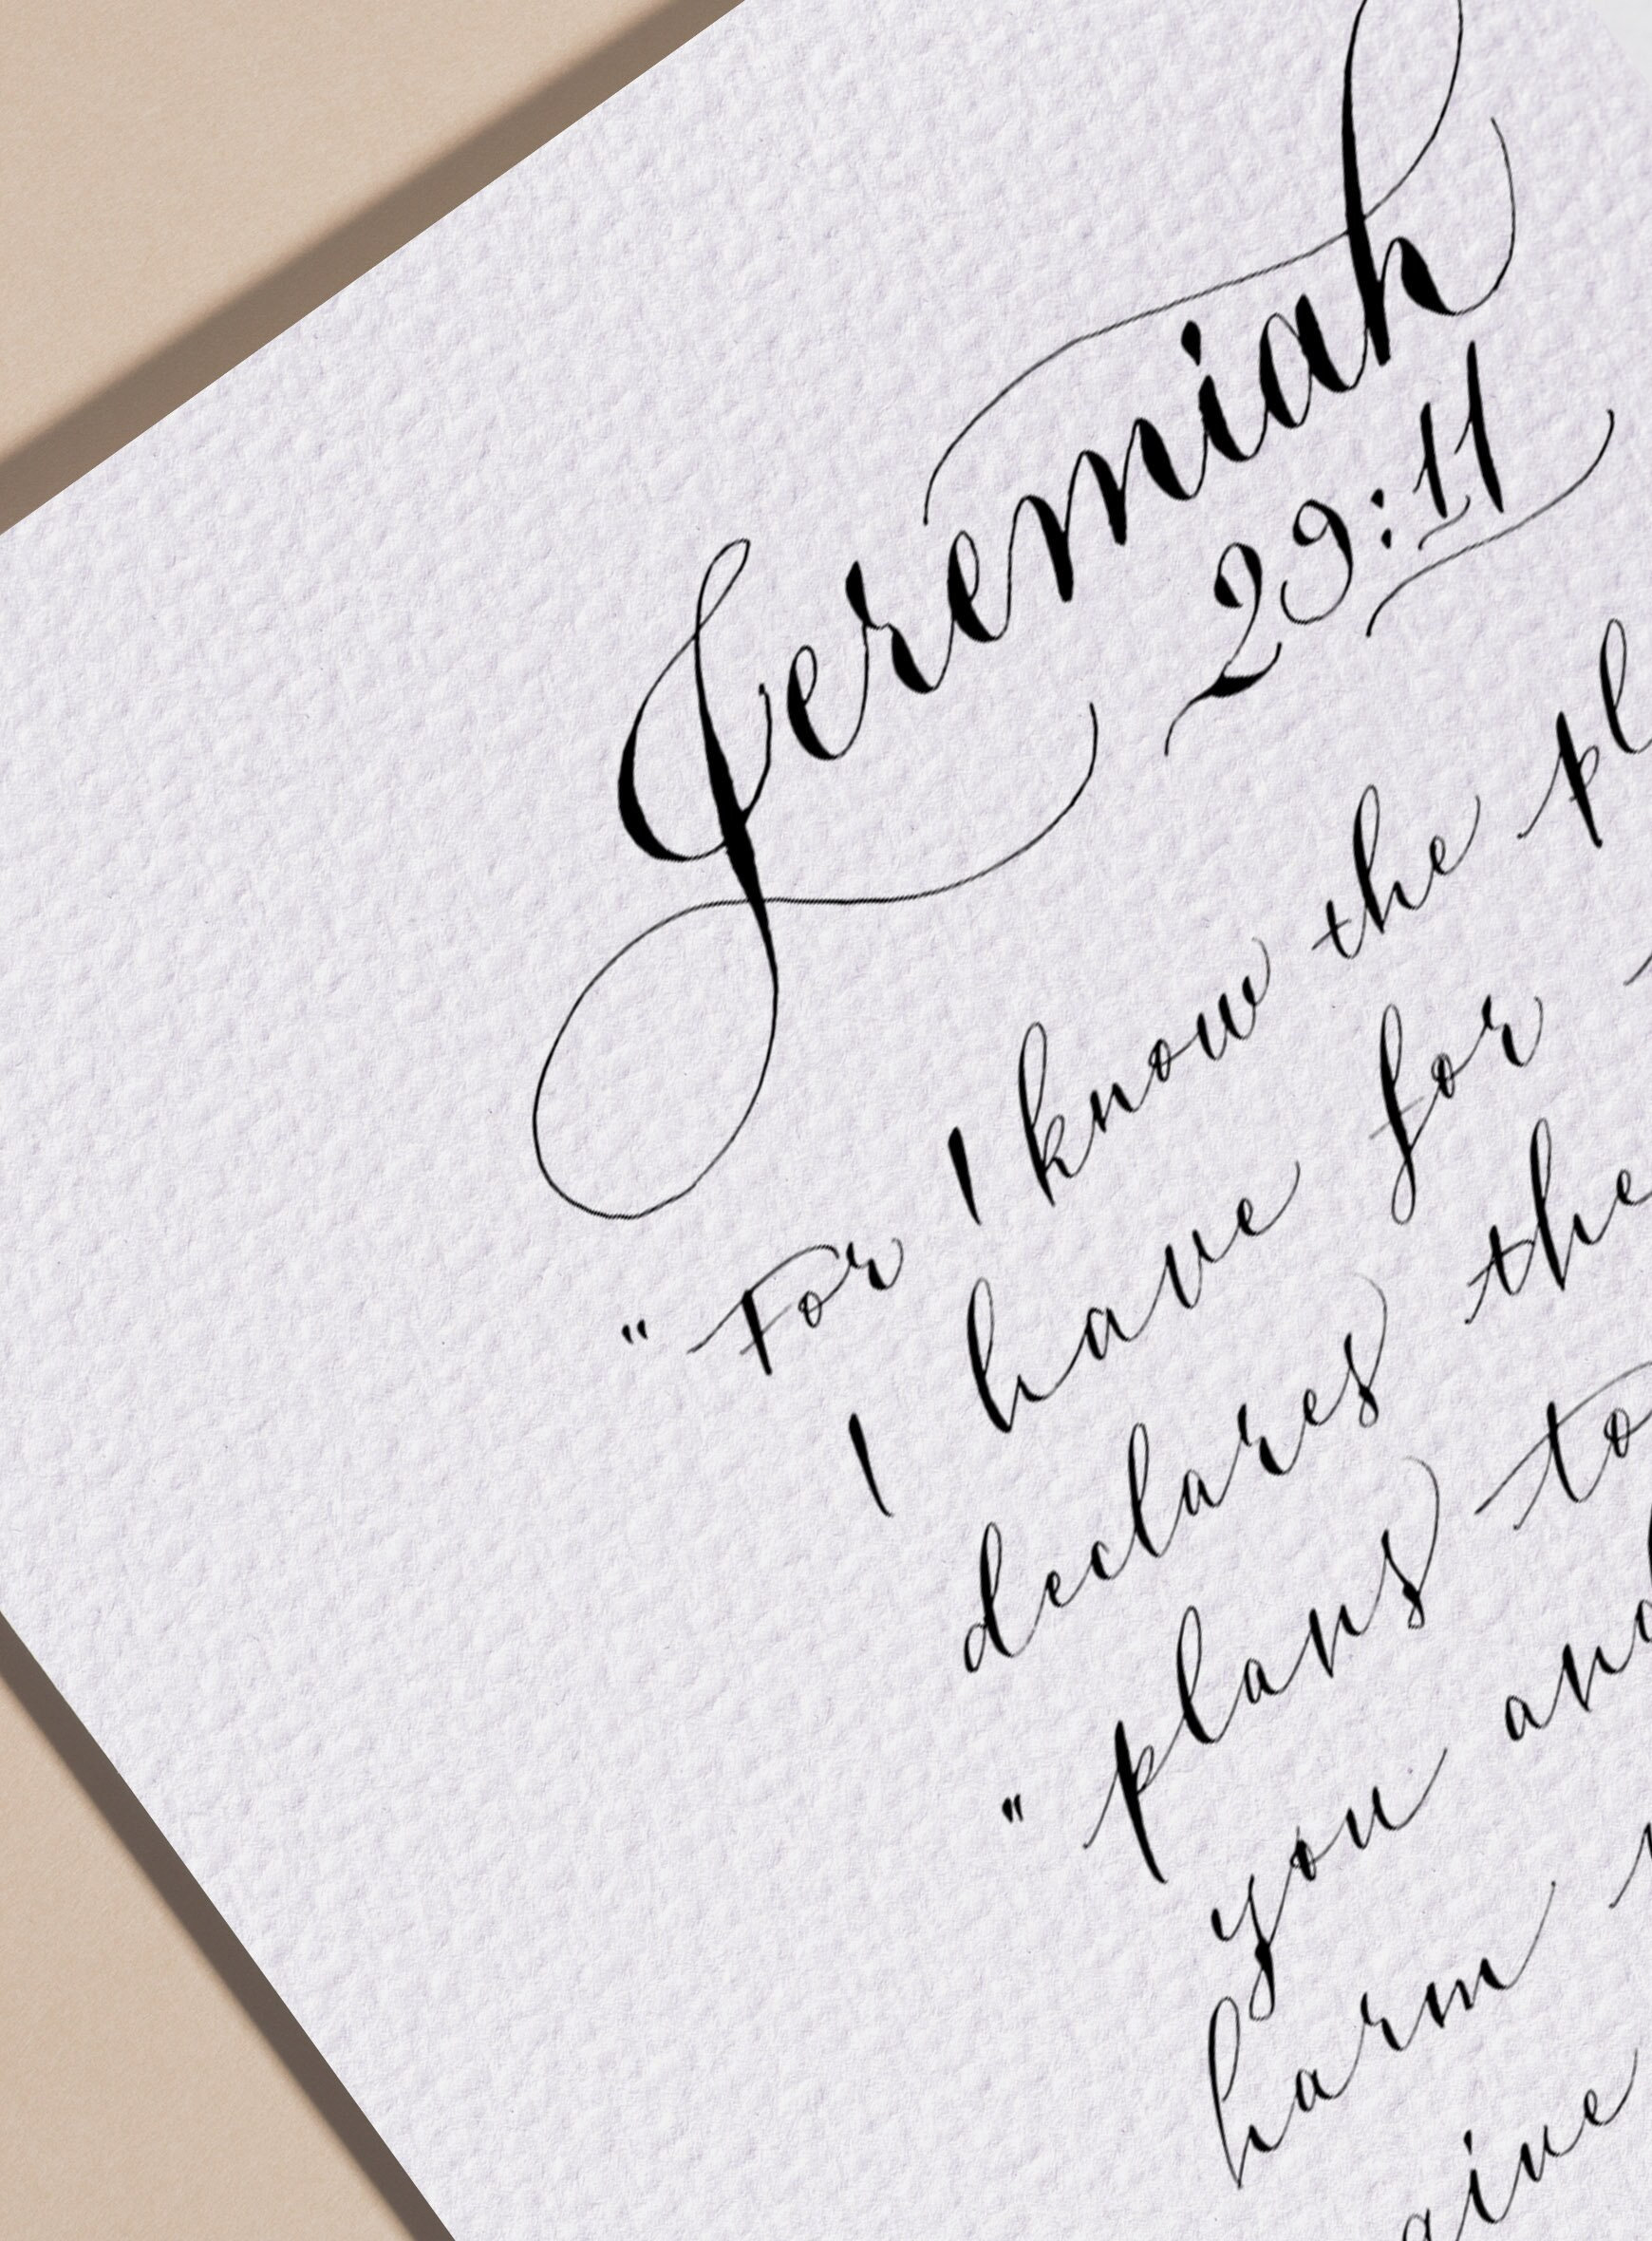 Jeremiah
29:11
" For I know the pl
I have for
declares the
" plans to
you and
harm
give